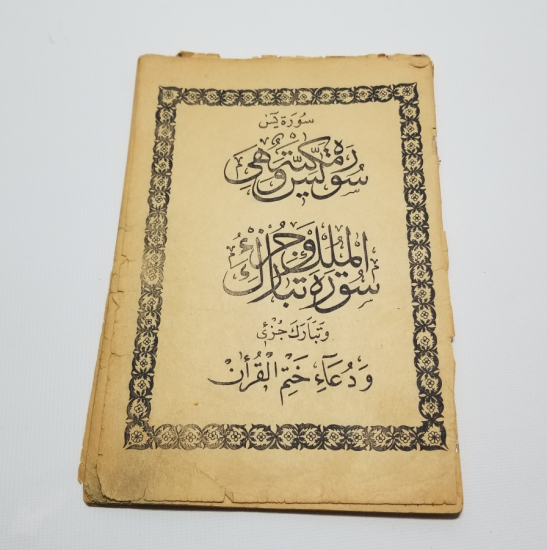 سورة يس
سورة يس مكية وهي
سورة تبارك الملك وجزئ
وتبارك جزئ
ودعاء ختم القرأن